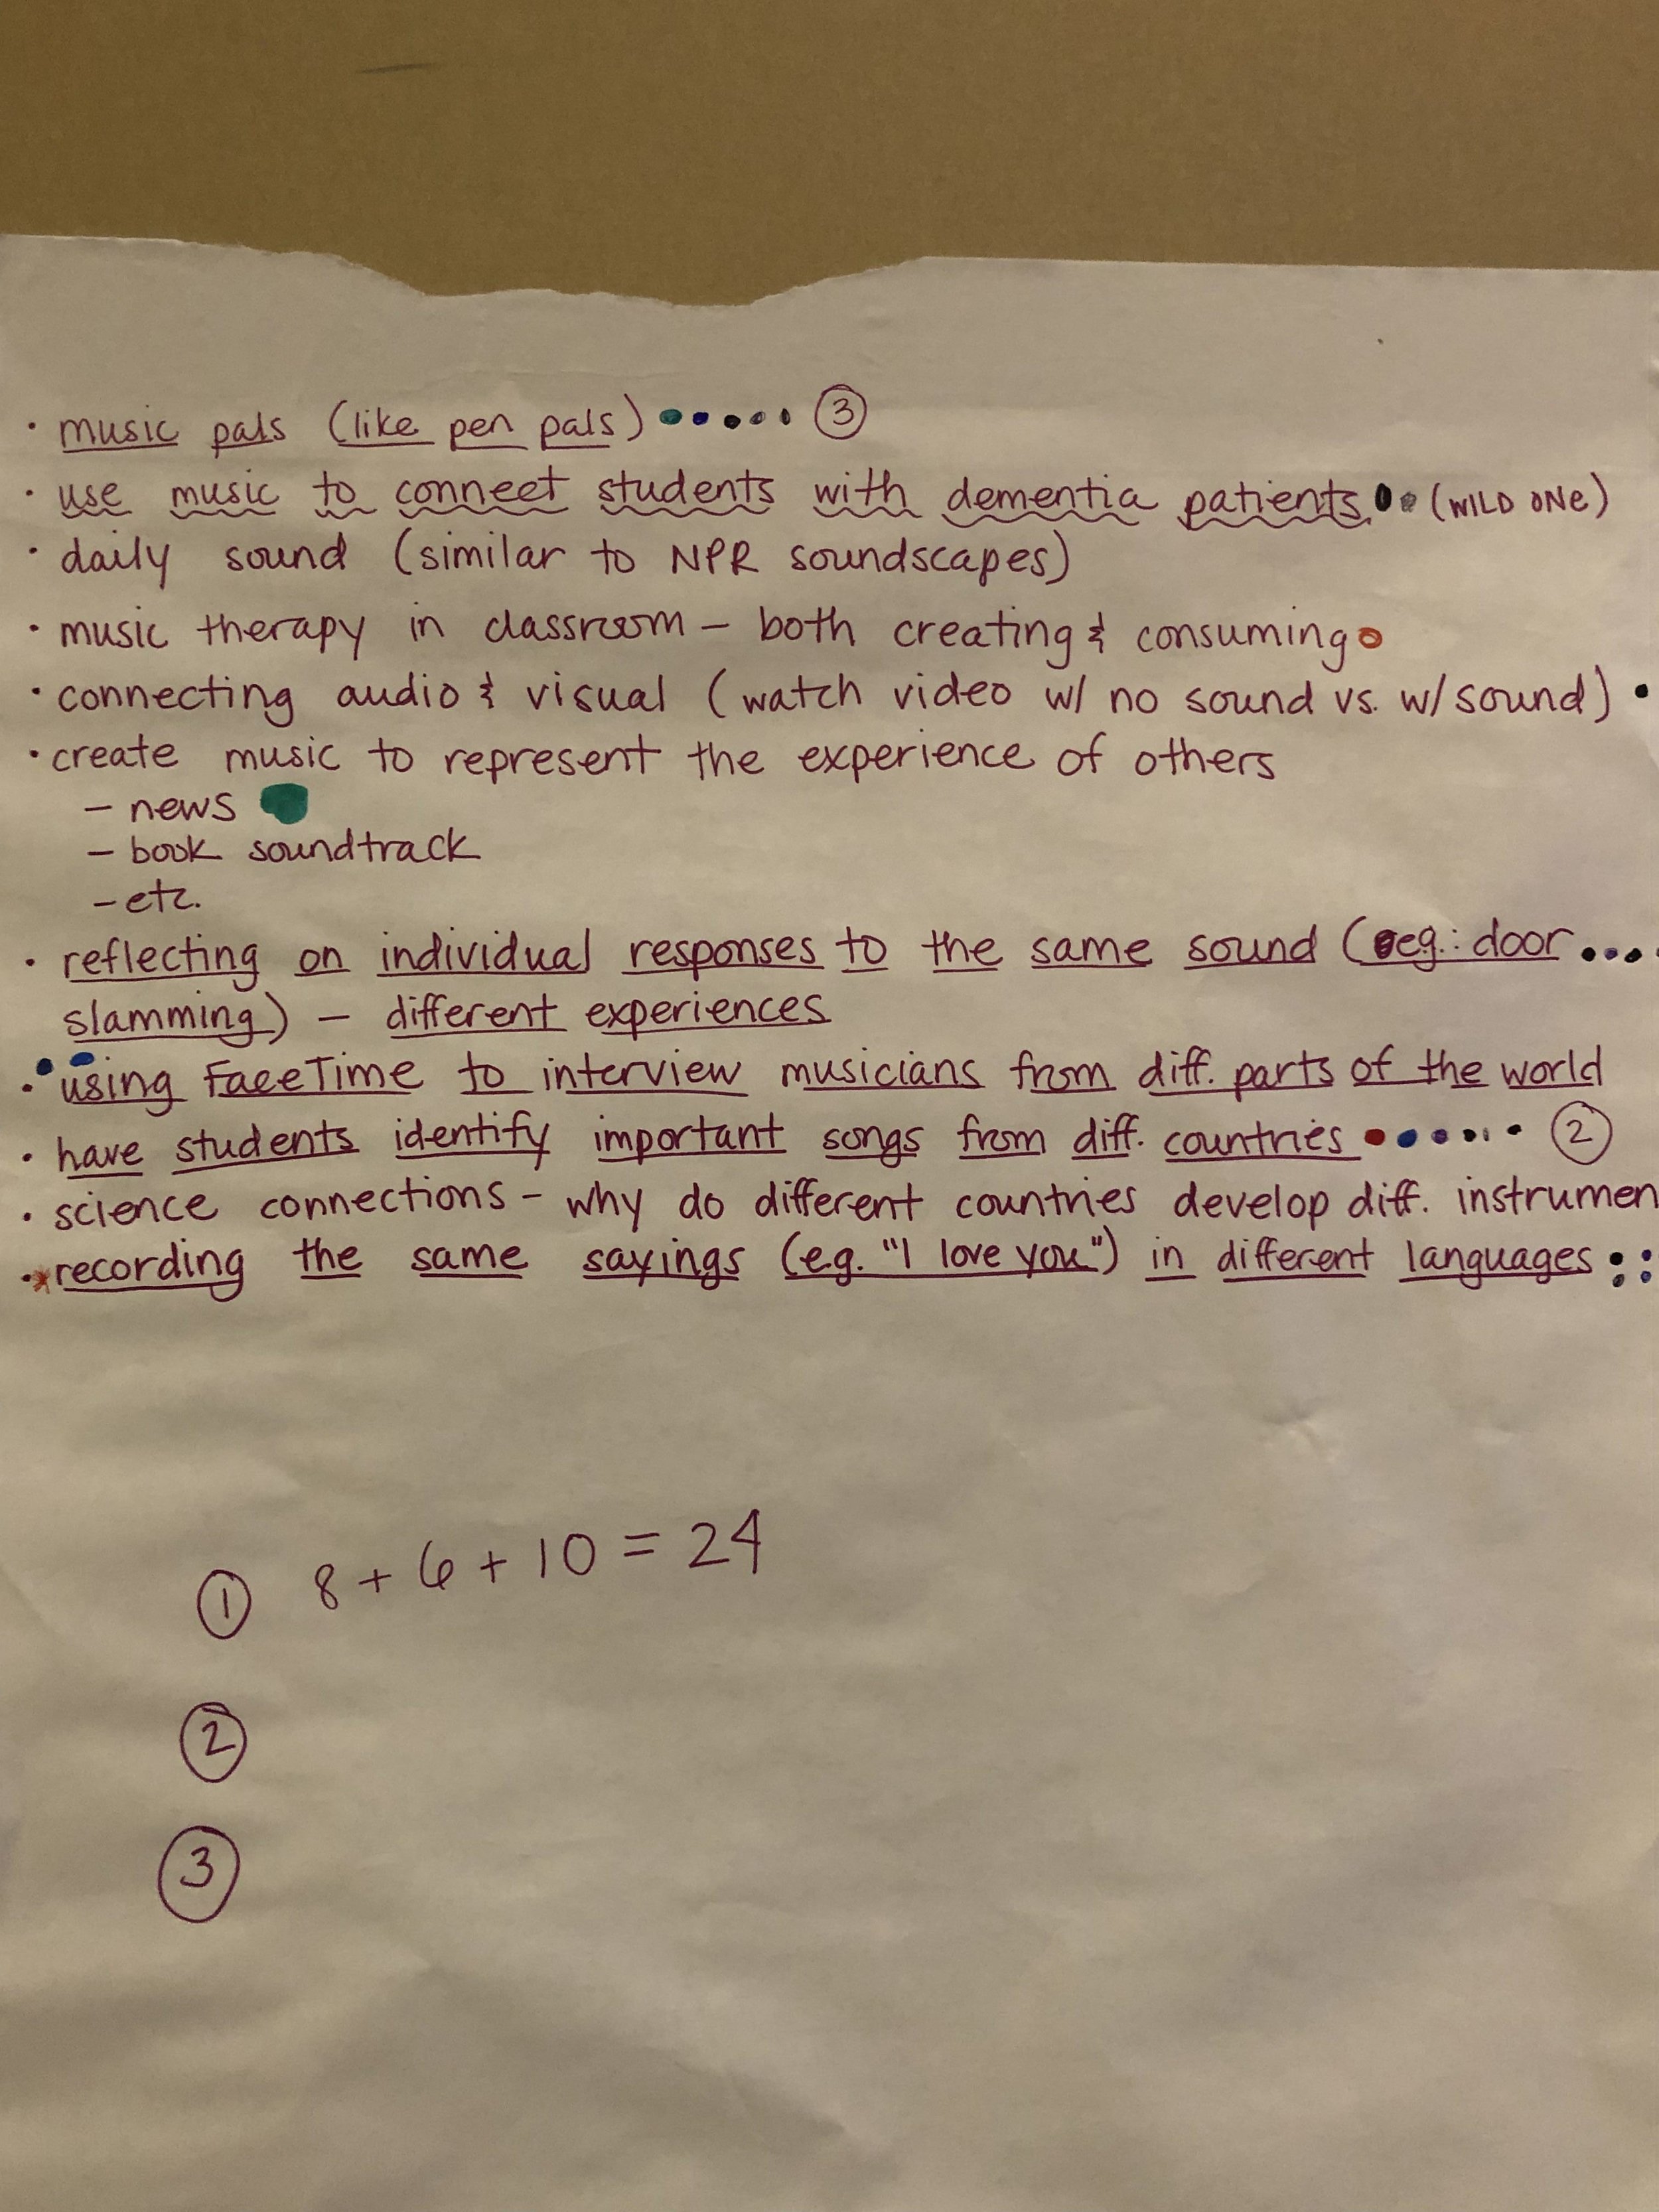 · music pals (like pen pals) ③
· use music to connect students with dementia patients (WILD ONE)
· daily sound (similar to NPR soundscapes)
· music therapy in classroom – both creating & consuming
· connecting audio & visual (watch video w/ no sound vs. w/ sound)
· create music to represent the experience of others
– news
– book soundtrack
– etc.
· reflecting on individual responses to the same sound (eg.: door
slamming) – different experiences
· using FaceTime to interview musicians from diff. parts of the world
· have students identify important songs from diff. countries ②
· science connections – why do different countries develop diff. instrumen
· * recording the same sayings (e.g. "I love you") in different languages
① 8 + 6 + 10 = 24
②
③